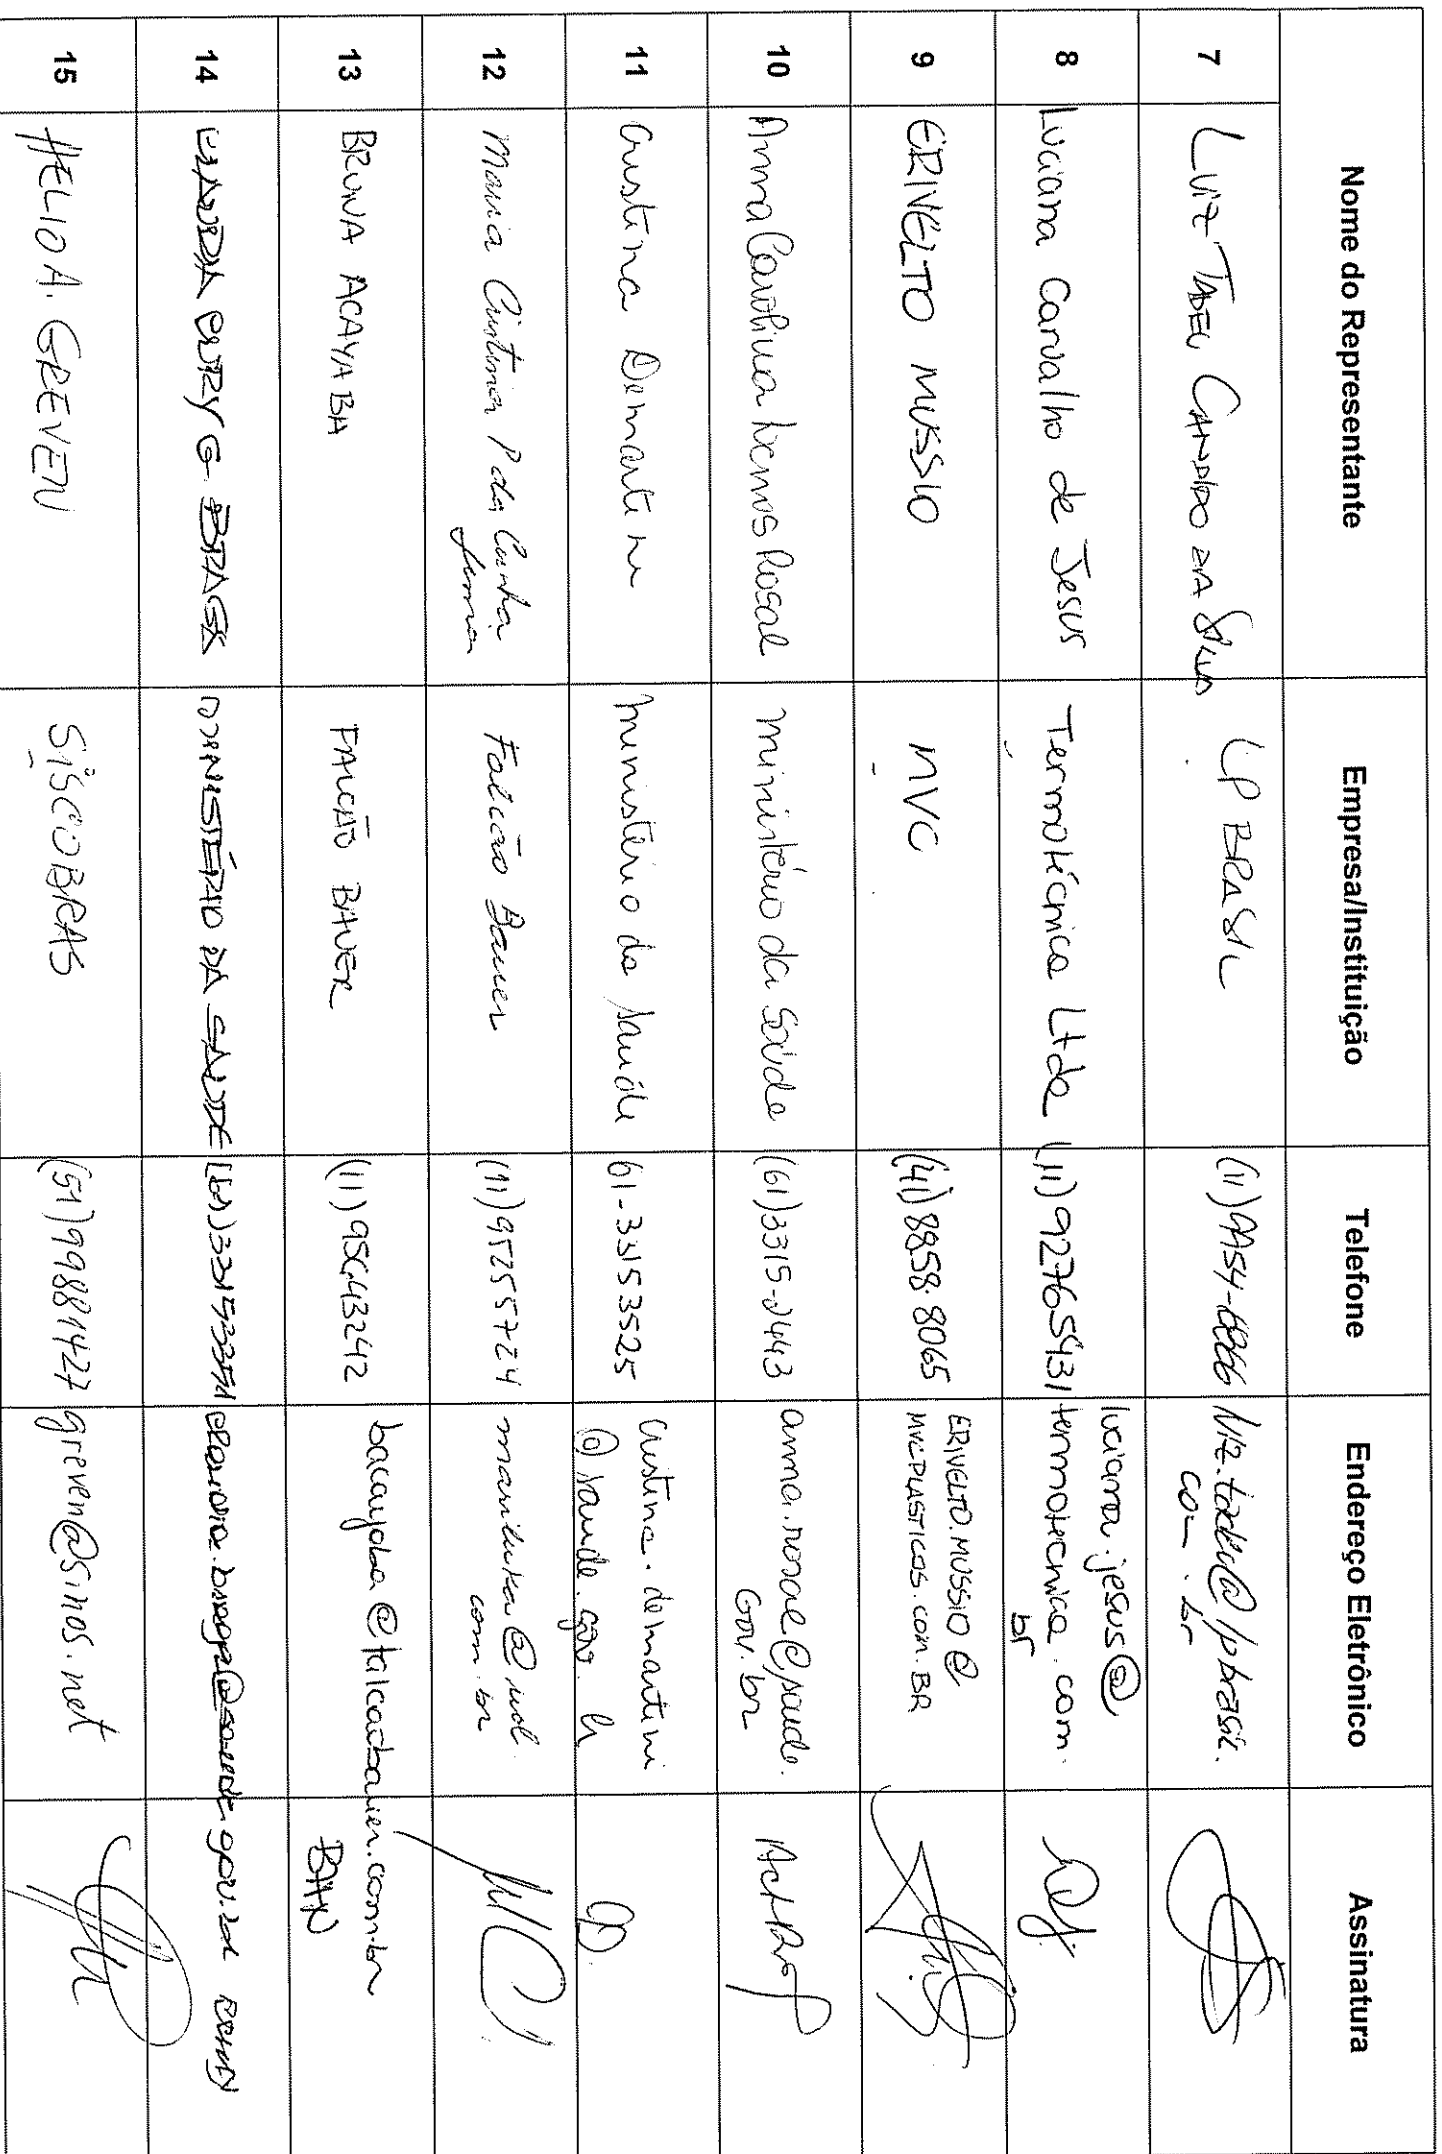 Nome do Representante Empresa/Instituição Telefone Endereço Eletrônico Assinatura
7 Luiz Tadeu Candido da Silva LP BRASIL (11) luiz.tadeu@lpbrasil.
com.br
8 Luciana Carvalho de Jesus Termotécnica Ltda (11) 927655431 luciana.jesus@
termotecnica.com.
br
9 ERIVELTO MUSSIO MVC (41) 8858.8065 ERIVELTO.MUSSIO@
MVCPLASTICOS.COM.BR
10 Anna Carolina Lemos Rosal Ministério da Saúde (61) 3315-2443 anna.rosal@saude.
Gov.br
11 Cristina Demartini Ministério da Saúde 61-33153525 cristina.demartini
@saude.gov.br
12 Maria Cristina P da Cunha Falcão Bauer (11) 952557224
com.br
13 BRUNA ACAYABA FALCÃO BAUER (11) 956443242 bacayaba@falcaobauer.com.br
14 BRAGA MINISTÉRIO DA SAÚDE
15 HELIO A. GREVEN SISCOBRAS (51) 99881427 greven@sinos.net